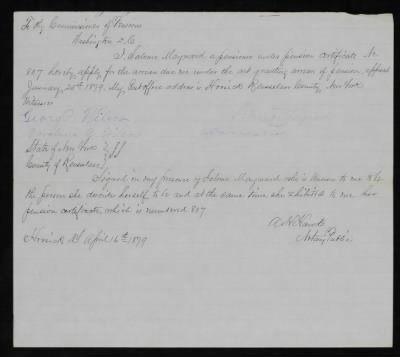 To the Commissioner of Pensions
Washington D.C.
I Salome Maynard a pensioner under pension certificate No
807 hereby apply for the arrears due me under the act granting arrears of pension, approved
January 25th 1879. My Post office address is Hoosick Rensselaer County, New York
Witness
State of New York } SS
County of Rensselaer }
Signed in my presence by Salome Maynard who is known to me to be
the person she describes herself to be and at the same time she exhibited to me her
pension certificate, which is numbered 807
Notary Public
Hoosick NY April 16th 1879